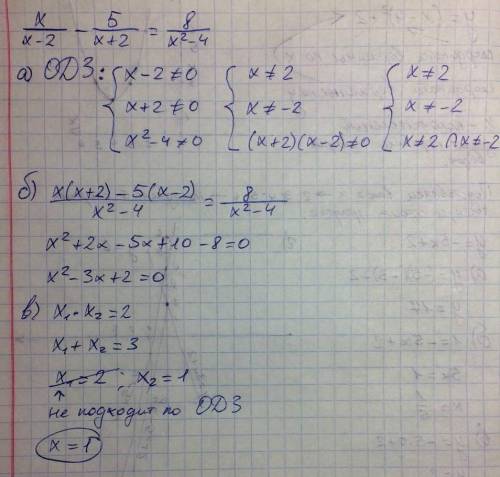 x/(x-2) - 5/(x+2) = 8/(x²-4)
а) ОДЗ: { x-2≠0 { x≠2 { x≠2
x+2≠0 x≠-2 x≠-2
x²-4≠0 (x+2)(x-2)≠0 x≠2 ∩ x≠-2
б) (x(x+2)-5(x-2))/(x²-4) = 8/(x²-4)
x²+2x-5x+10-8=0
x²-3x+2=0
в) x₁·x₂=2
x₁+x₂=3
x₁=2; x₂=1
↑
не подходит по ОДЗ
x=1